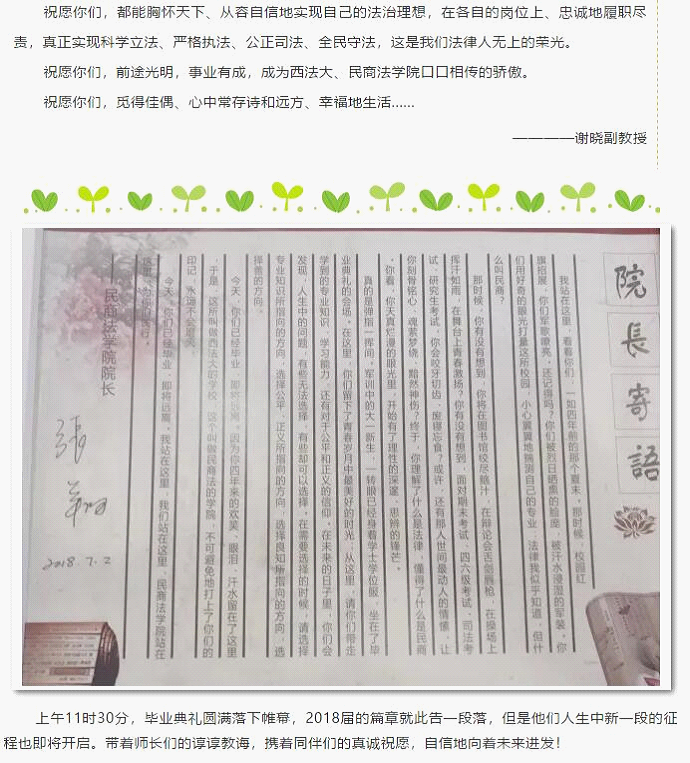 祝愿你们，都能胸怀天下、从容自信地实现自己的法治理想，在各自的岗位上、忠诚地履职尽
责，真正实现科学立法、严格执法、公正司法、全民守法，这是我们法律人无上的荣光。
祝愿你们，前途光明，事业有成，成为西法大、民商法学院口口相传的骄傲。
祝愿你们，觅得佳偶、心中常存诗和远方、幸福地生活......
————谢晓副教授
院長寄語
我站在这里，看着你们，一如四年前的那个夏末，那时候，校园红
旗招展，你们军歌嘹亮，还记得吗？你们被烈日晒黑的脸庞，被汗水浸湿的军装，你
们用好奇的眼光打量这所校园，小心翼翼地揣测自己的专业，法律我似乎知道，但什
么叫民商？
那时候，你有没有想到，你将在图书馆绞尽脑汁，在辩论会舌剑唇枪，在操场上
挥汗如雨，在舞台上青春激扬？你有没有想到，面对期末考试、四六级考试、司法考
试、研究生考试，你会咬牙切齿、废寝忘食？或许，还有那人世间最动人的情愫，让
你刻骨铭心、魂萦梦绕、黯然神伤？终于，你理解了什么是法律，懂得了什么是民商
，你看，你天真烂漫的眼光里，开始有了理性的深邃，思辨的锋芒。
真的是弹指一挥间，军训中的大一新生，一转眼已经身着学士学位服，坐在了毕
业典礼的会场。在这里，你们留下了青春岁月中最美好的时光；从这里，请你们带走
学到的专业知识、学习能力，还有对于公平和正义的信仰。在未来的日子里，你们会
发现，人生中的问题，有些无法选择，有些却可以选择，在需要选择的时候，请选择
专业知识所指向的方向，选择公平、正义所指向的方向，选择良知所指向的方向，选
择善的方向。
今天，你们已经毕业，即将远离，因为你四年来的欢笑、眼泪、汗水留在了这里
，于是，这所叫做西法大的学校，这个叫做民商法的学院，不可避免地打上了你们的
印记，永远不会磨灭。
今天，你们已经毕业，即将远离，我站在这里，我们站在这里，民商法学院站在
这里，
民商法学院院长
张翔
2018.7.2
上午11时30分，毕业典礼圆满落下帷幕，2018届的篇章就此告一段落，但是他们人生中新一段的征
程也即将开启。带着师长们的谆谆教诲，携着同伴们的真诚祝愿，自信地向着未来进发！